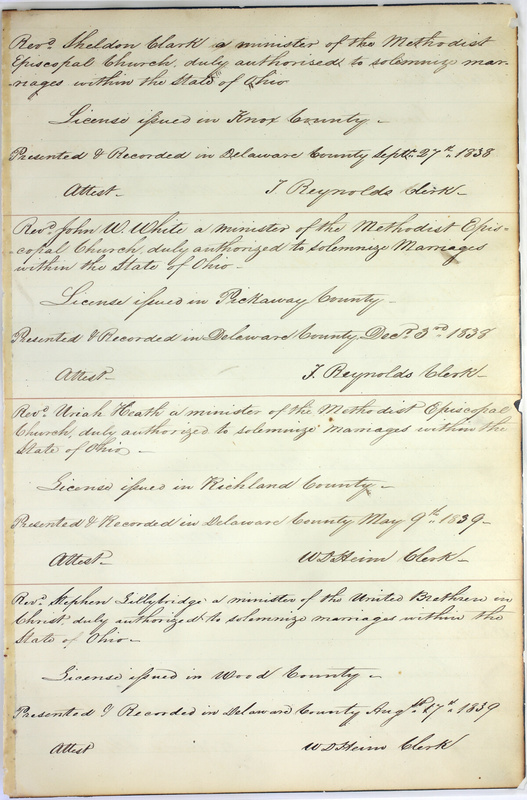 Revd. Sheldon Clark a minister of the Methodist
Episcopal Church, duly authorised to solemnize mar-
-riages within the State of Ohio
License issued in Knox County -
Presented & Recorded in Delaware County Septr. 27th. 1838
Attest - T Reynolds Clerk -
Revd. John W. White a minister of the Methodist Epis-
-copal Church, duly authorized to solemnize Marriages
within the State of Ohio -
License issued in Pickaway County -
Presented & Recorded in Delaware County Decr. 3rd. 1838
Attest - T. Reynolds Clerk -
Revd. Uriah Heath a minister of the Methodist Episcopal
Church, duly authorized to solemnize marriages within the
State of Ohio -
License issued in Richland County -
Presented & Recorded in Delaware County May 9th. 1839 -
Attest - W D Heim Clerk -
Revd. Stephen Lillybridge a minister of the United Brethren in
Christ duly authorized to solemnize marriages within the
State of Ohio -
License issued in Wood County -
Presented & Recorded in Delaware County Augth. 17th. 1839
Attest W D Heim Clerk